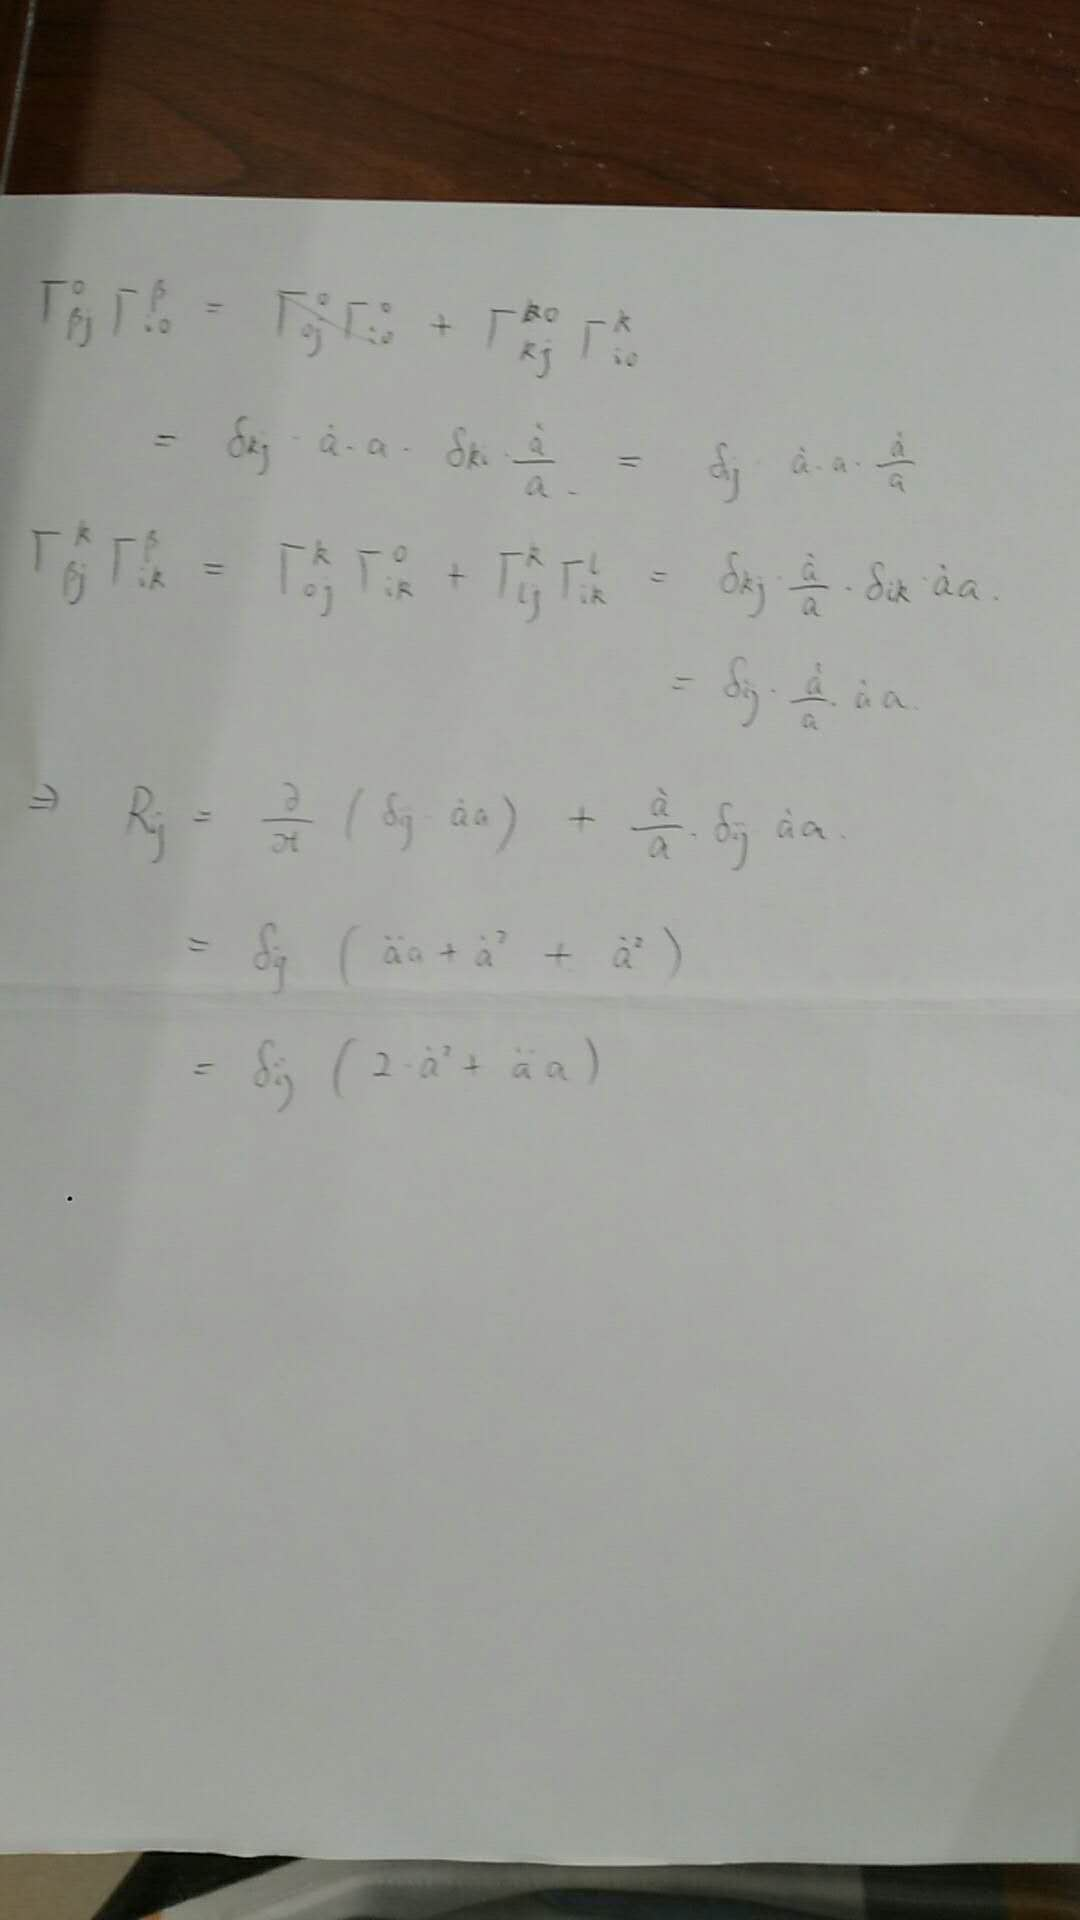 Γ⁰_βj Γ^β_i0 = Γ⁰_0j Γ⁰_i0 + Γ^0_kj Γ^k_i0
= δkj · ȧ · a · δki · ȧ/a = δij ȧ · a · ȧ/a
Γ^k_βj Γ^β_ik = Γ^k_0j Γ^0_ik + Γ^k_lj Γ^l_ik = δkj · ȧ/a · δik · ȧa.
= δij · ȧ/a · ȧa.
⇒ Rij = ∂/∂t (δij · ȧa) + ȧ/a · δij ȧa.
= δij (äa + ȧ² + ȧ²)
= δij (2 · ȧ² + äa)